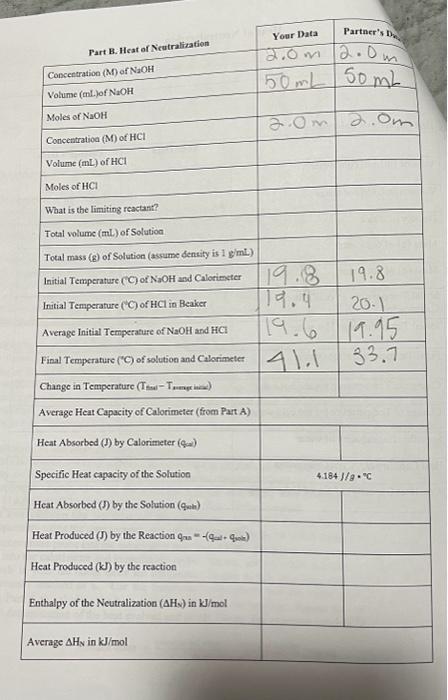 Part B. Heat of Neutralization Your Data Partner's
Concentration (M) of NaOH 2.0m 2.0m
Volume (mL)of NaOH 50 mL 50 mL
Moles of NaOH
Concentration (M) of HCl 2.0m 2.0m
Volume (mL) of HCl
Moles of HCl
What is the limiting reactant?
Total volume (mL) of Solution
Total mass (g) of Solution (assume density is 1 g/mL)
Initial Temperature (°C) of NaOH and Calorimeter 19.8 19.8
Initial Temperature (°C) of HCl in Beaker 19.4 20.1
Average Initial Temperature of NaOH and HCl 19.6 19.95
Final Temperature (°C) of solution and Calorimeter 41.1 33.7
Change in Temperature (Tfinal – Taverage initial)
Average Heat Capacity of Calorimeter (from Part A)
Heat Absorbed (J) by Calorimeter (qcal)
Specific Heat capacity of the Solution 4.184 J/g • °C
Heat Absorbed (J) by the Solution (qsoln)
Heat Produced (J) by the Reaction qrxn = -(qcal+ qsoln)
Heat Produced (kJ) by the reaction
Enthalpy of the Neutralization (ΔHN) in kJ/mol
Average ΔHN in kJ/mol